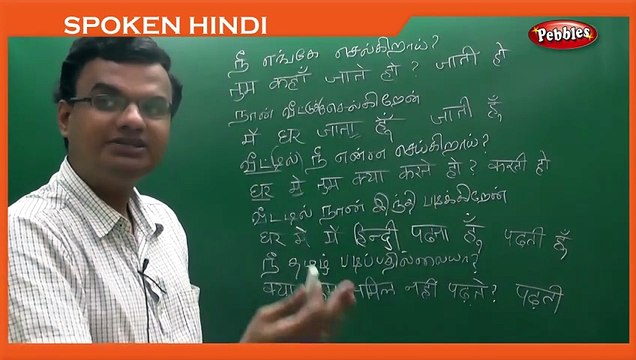 SPOKEN HINDI
Pebbles
நீ எங்கே செல்கிறாய்?
तुम कहाँ जाते हो? जाती हो
நான் வீட்டுக்கு செல்கிறேன்
मैं घर जाता हूँ जाती हूँ
வீட்டில் நீ என்ன செய்கிறாய்?
घर में तुम क्या करते हो? करती हो
வீட்டில் நான் இந்தி படிக்கிறேன்
घर में मैं हिन्दी पढता हूँ पढती हूँ
நீ தமிழ் படிப்பதில்லையா?
क्या तमिल नहीं पढ़ते? पढ़ती